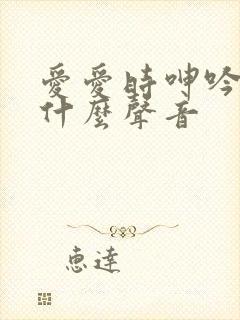 愛愛時呻吟
什麼聲音
恵達